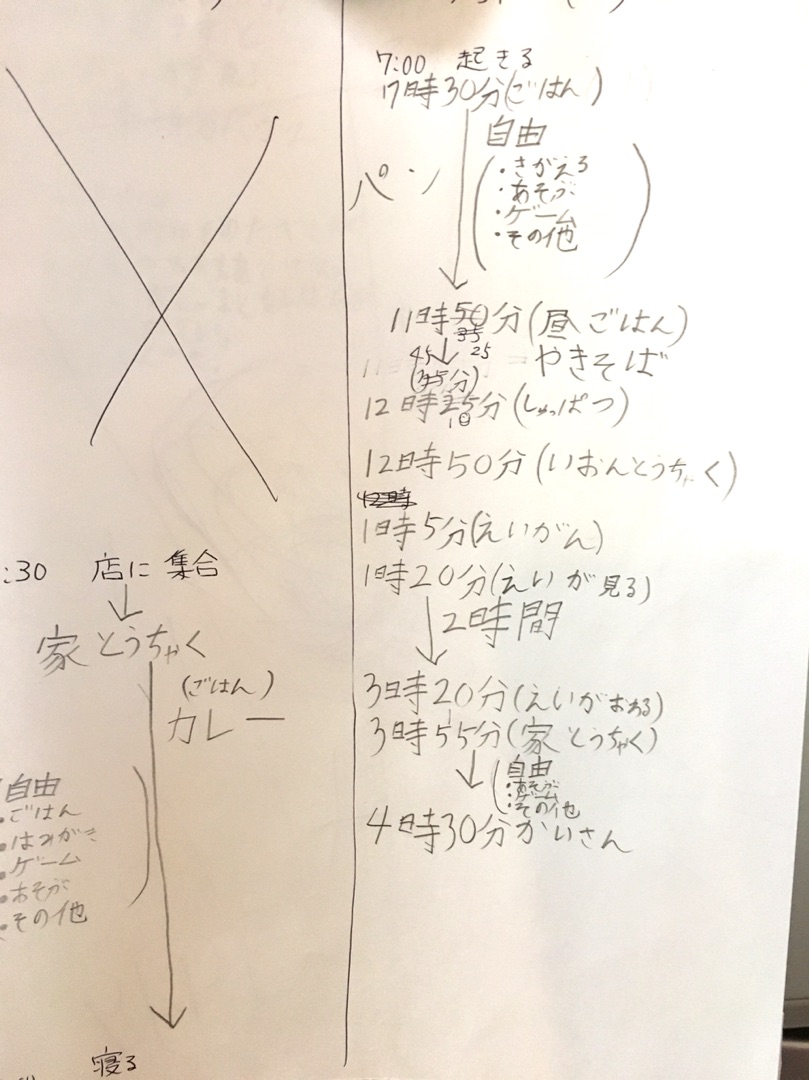 :30 店に集合
↓
家とうちゃく
(ごはん)
カレー
自由
・ごはん
・はみがき
・ゲーム
・あそぶ
・その他
寝る
7:00 起きる
7時30分(ごはん)
パン
自由
・きがえる
・あそぶ
・ゲーム
・その他
11時50分(昼ごはん)
45↓25
やきそば
12時10分(しゅっぱつ)
12時50分(いおんとうちゃく)
12時
1時5分(えいがん)
1時20分(えいが見る)
↓2時間
3時20分(えいがおわる)
3時55分(家とうちゃく)
自由
・あそぶ
・ゲーム
・その他
4時30分かいさん